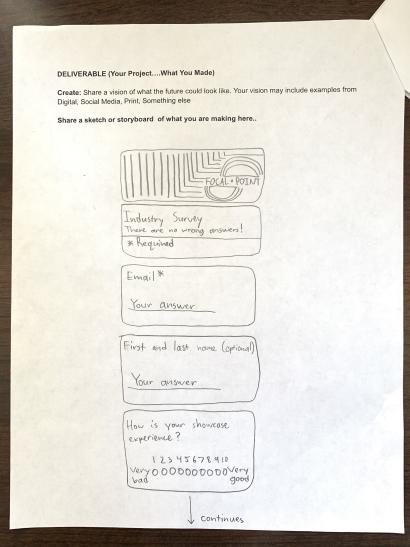 DELIVERABLE (Your Project....What You Made)
Create: Share a vision of what the future could look like. Your vision may include examples from
Digital, Social Media, Print, Something else
Share a sketch or storyboard of what you are making here..
FOCAL • POINT
Industry Survey
There are no wrong answers!
* Required
Email *
Your answer
First and last name (optional)
Your answer
How is your showcase
experience?
1 2 3 4 5 6 7 8 9 10
Very bad
Very good
continues